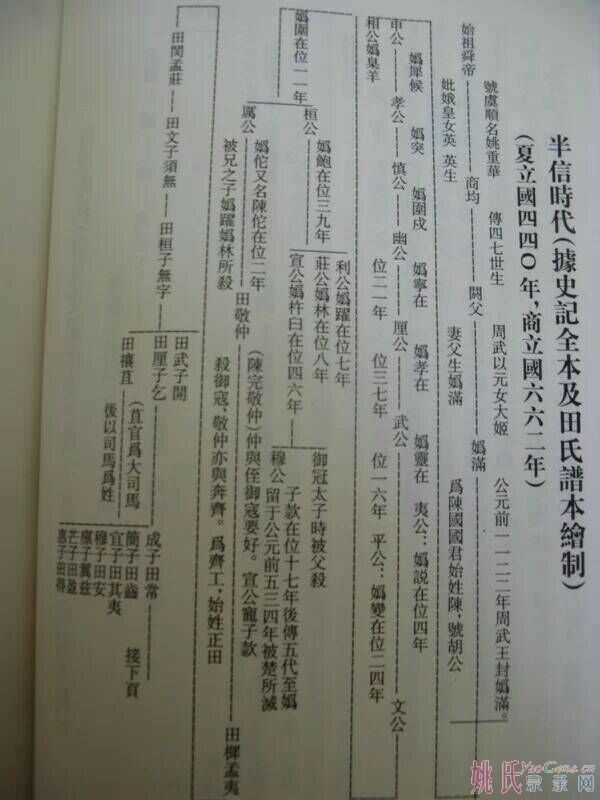 半信時代(據史記全本及田氏譜本繪制)
(夏立國四四〇年,商立國六六二年)
始祖舜帝
號虞順名姚重華
妣娥皇女英 英生
商均
傳四七世生
閼父
周武以元女大姬
妻父生媯滿
媯滿
公元前一一二二年周武王封媯滿。
爲陳國國君始姓陳,號胡公
申公
媯犀候
相公媯臯羊
孝公
媯突
慎公
媯圉戍
幽公
媯寧在
位二一年
厘公
媯孝在
位三七年
武公
媯靈在
位一六年
夷公:媯説在位四年
平公:媯燮在位二四年
文公
媯圉在位一一年
桓公
媯鮑在位三九年
利公媯躍在位七年
莊公媯林在位八年
宣公媯杵臼在位四六年
御冠太子時被父殺
穆公
子款在位十七年後傳五代至媯
留于公元前五三四年被楚所滅
厲公
媯佗又名陳佗在位二年
被兄之子媯躍媯林所殺
田敬仲
(陳完敬仲)仲與侄御寇要好。宣公寵子款
殺御寇,敬仲亦與奔齊。爲齊工,始姓正田
田樨孟夷
田閔孟莊
田文子須無
田桓子無字
田武子開
田厘子乞
田穰苴
(苴官爲大司馬
後以司馬爲姓
成子田常
簡子田齒
宣子田其夷
穆子田安
廩子翼兹
芒子田盈
惠子田得
接下頁
姚氏宗菜网
YaoGens.cn